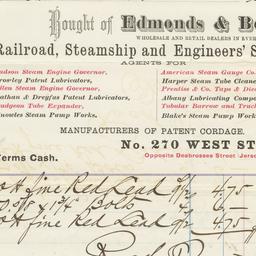 Bought of Edmonds & Bo
WHOLESALE AND RETAIL DEALERS IN EVER
Railroad, Steamship and Engineers' S
AGENTS FOR
udson Steam Engine Governor,
rowley Patent Lubricators,
llen Steam Engine Governor,
athan & Dreyfus Patent Lubricators,
udgeon Tube Expander,
nowles Steam Pump Works.
American Steam Gauge Co.
Harper Steam Tube Cleane
Prentiss & Co. Taps & Dies
Albany Lubricating Compo
Tubular Barrow and Truck
Blake's Steam Pump Works
MANUFACTURERS OF PATENT CORDAGE.
No. 270 WEST ST
Terms Cash.
Opposite Desbrosses Street Jerse
fine Red Lead 9/2 4.75
5/8 x 1 3/4 Bolts 6.—
fine Red Lead 9/2 4.75